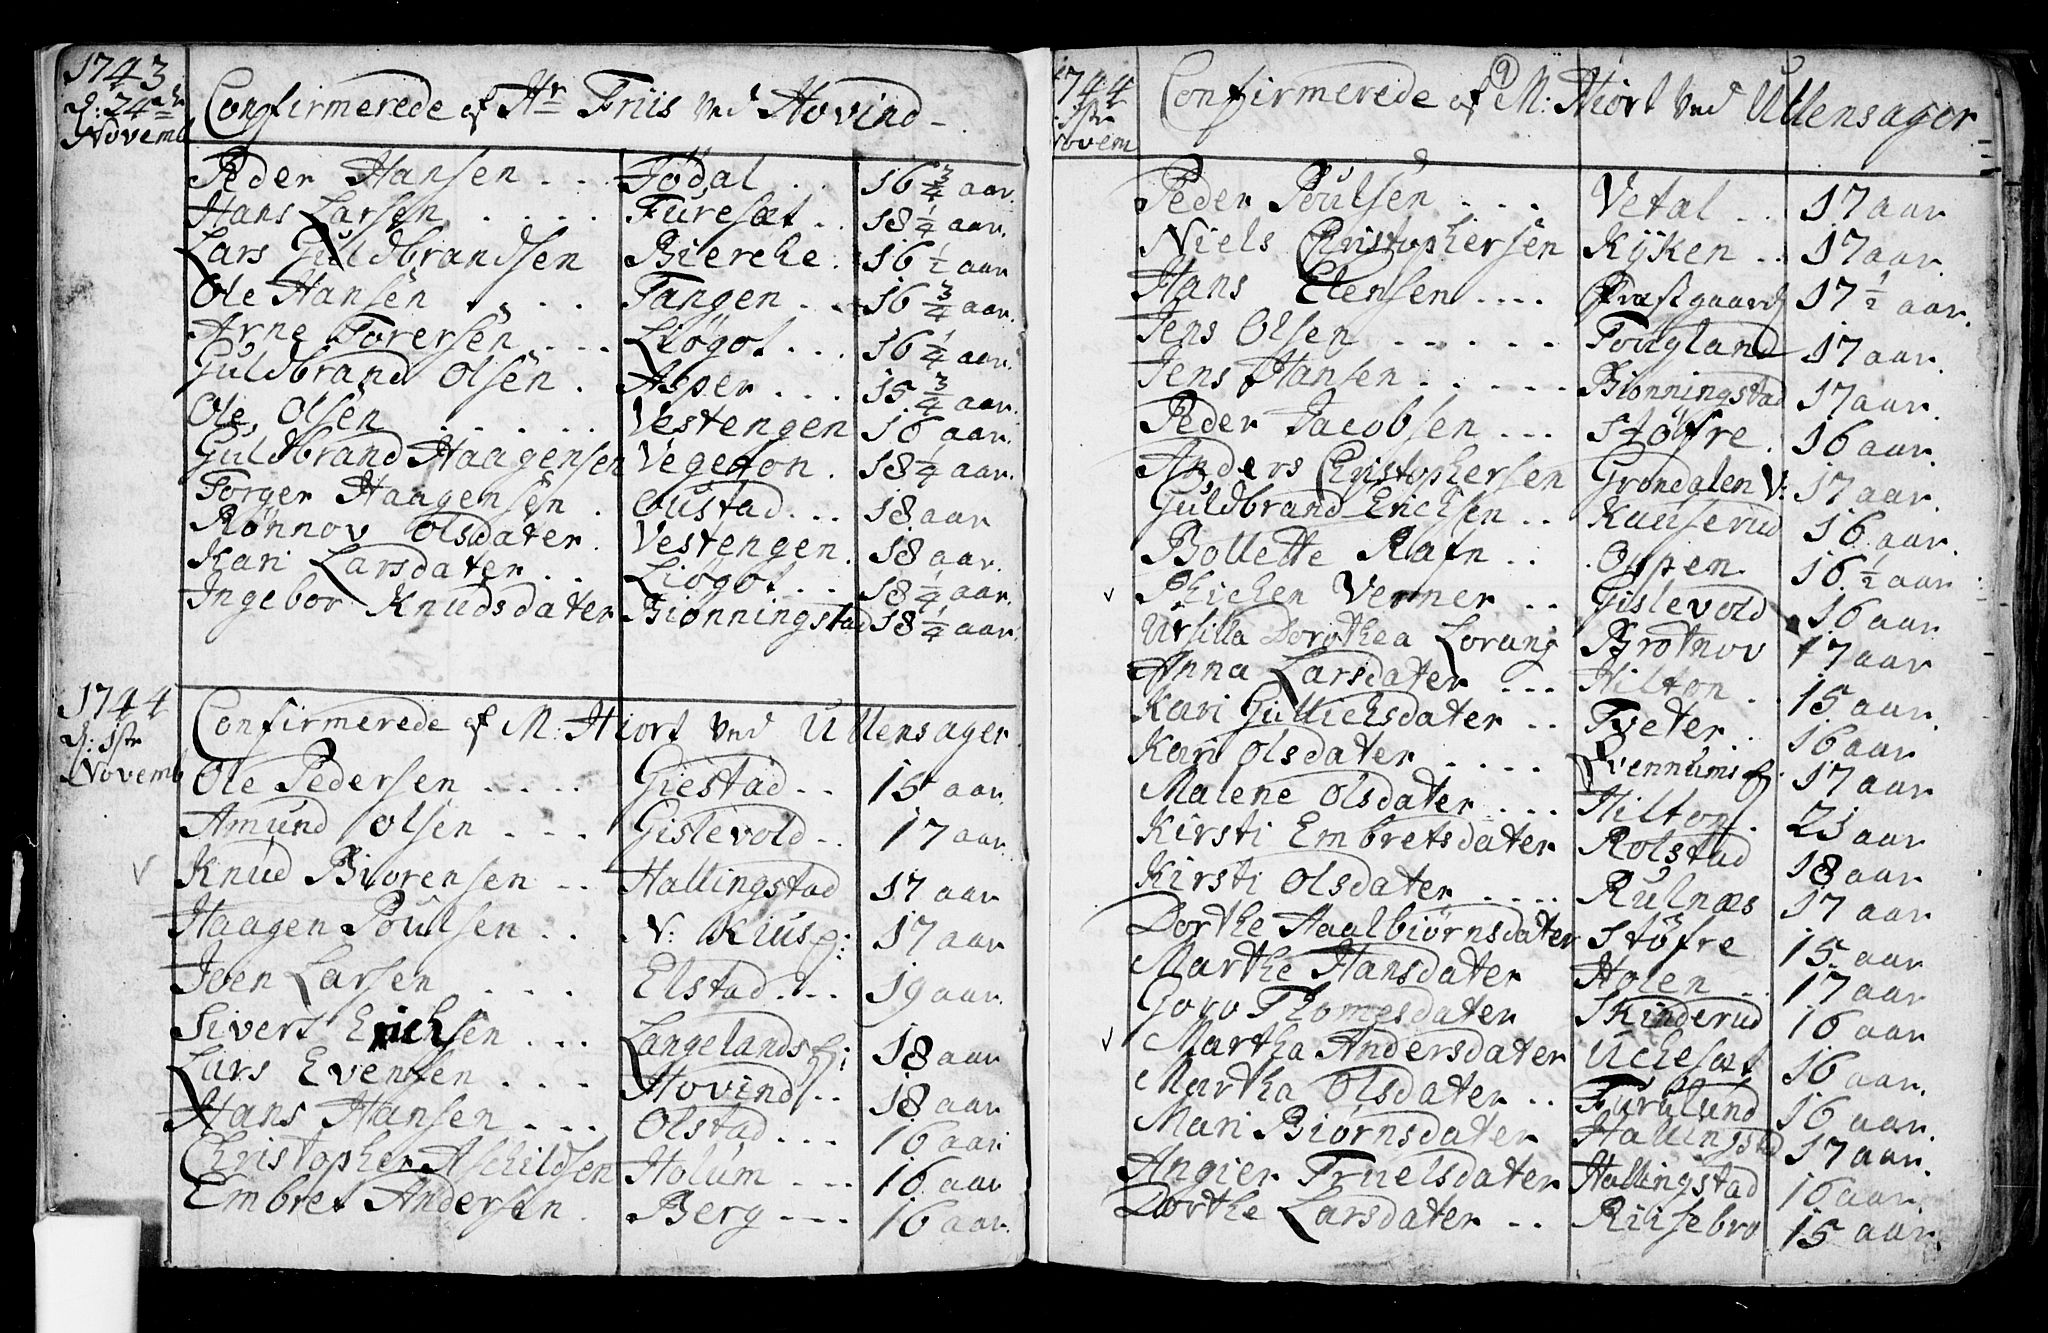 1743
d: 24de
Novemb
Confirmerede af Hr Friis ved Hovind
Peder Hansen Födal 16 3/4 aar.
Hans Larsen Furesæt 18 1/4 aar.
Lars Guldbrandsen Bierche 16 1/2 aar
Ole Hansen Tangen 16 3/4 aar.
Arne Torersen Liøgot 16 1/4 aar.
Guldbrand Olsen Asper 15 3/4 aar.
Ole Olsen Vestengen 16 aar.
Guldbrand Haagensen 18 1/4 aar.
Torger Haagensen Oustad 18 aar
Rønnov Olsdater Vestengen 18 aar.
Kari Larsdater Liøgot 18 1/4 aar.
Ingebor Knudsdater Biønningstad 18 1/4 aar.
1744
d: 1ste
Novemb
Confirmerede af M: Hiort ved Ullensager
Ole Pedersen Giestad 15 aar.
Amund Olsen Gislevold 17 aar
Knud Biorensen Hallingstad 17 aar
Haagen Poulsen N: Kius ej: 17 aar
Joen Larsen Elstad 19 aar.
Sivert Erichsen Langelands ej: 18 aar
Lars Evensen Hovind 18 aar
Hans Hansen Olstad 16 aar
Christopher Aschildsen Holum 16 aar
Embret Andersen Berg 16 aar.
9
1744
1ste
Novem
Confirmerede af M: Hiort ved Ullensager
Peder Poulsen Vetal 17 aar
Niels Christophersen Kÿken 17 aar.
Hans Elensen Præstgaard 17 1/2 aar.
Jens Olsen Fougland 17 aar
Jens Hansen Bionningstad 17 aar.
Peder Jacobsen Støfre 16 aar.
Anders Christophersen Grøndalen V: 17 aar.
Guldbrand Erichsen Kauserud 16 aar.
Bollette Rafn Oppen 16 1/2 aar
Verner Gislevold 16 aar
Ursilla Dorothea Lorang Brotnov 17 aar
Anna Larsdater Hilton 15 aar.
Kari Gullichsdater Tveter 16 aar
Kari Olsdater 17 aar
Malene Olsdater Hilton 21 aar
Kirsti Embretsdater Rolstad 18 aar
Kirsti Olsdater Rulnæs 17 aar
Dorthe Aaalbiørnsdater Støfre 15 aar
Marthe Hansdater Holen 17 aar
Goro Thomesdater Skinderud 16 aar
Martha Andersdater Uchesæt 16 aar.
Martha Olsdater Fuglund 16 aar.
Mari Biørnsdater Hallingstad 17 aar.
Angier Truelsdater Hallingstad 16 aar.
Dorthe Larsdater Riisebro 15 aar.